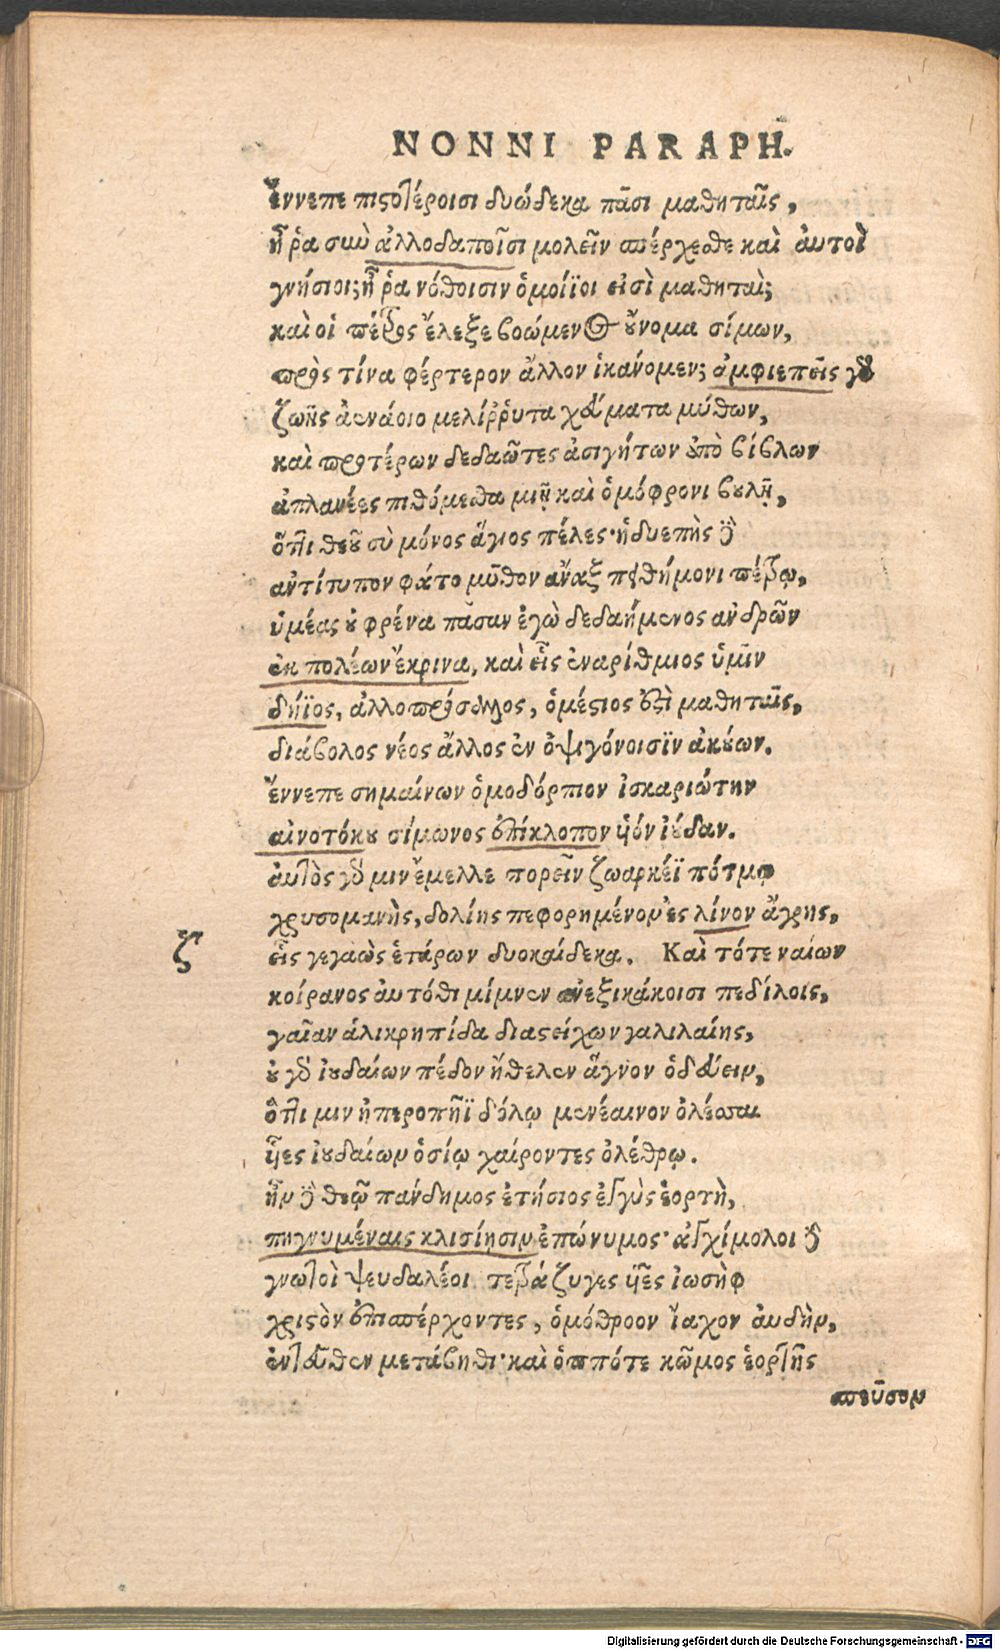 NONNI PARAPH.
ἔννεπε πιστοτέροισι δυώδεκα πᾶσι μαθηταῖς,
ἦ ῥα σὺν ἀλλοδαποῖσι μολεῖν σπέρχεσθε καὶ αὐτοὶ
γνήσιοι; ἦ ῥα νόθοισιν ὁμοίϊοι εἰσὶ μαθηταὶ;
καὶ οἱ πέτρος ἔλεξε βοώμενος οὔνομα σίμων,
πρὸς τίνα φέρτερον ἄλλον ἱκάνομεν; ἀμφιεπεῖς γὰρ
ζωῆς ἀενάοιο μελίῤῥυτα χεύματα μύθων,
καὶ προτέρων δεδαῶτες ἀσιγήτων ὑπὸ βίβλων
ἀπλανέες πιθόμεσθα μιῇ καὶ ὁμόφρονι βουλῇ,
ὅττι θεοῦ σὺ μόνος ἅγιος πέλες· ἡδυεπὴς δὲ
ἀντίτυπον φάτο μῦθον ἄναξ πειθήμονι πέτρῳ,
ὑμέας οὐ φρένα πᾶσαν ἐγὼ δεδαήμενος ἀνδρῶν
ἐκ πολέων ἔκρινα, καὶ εἷς ἐναρίθμιος ὑμῖν
δήϊος, ἀλλοπρόσαλλος, ὁμέστιος ἐστὶ μαθηταῖς,
διάβολος νέος ἄλλος ἐν ὀψιγόνοισϊν ἀκούων.
ἔννεπε σημαίνων ὁμοδόρπιον ἰσκαριώτην
αἰνοτόκου σίμωνος ἐπίκλοπον υἱὸν ἰούδαν.
αὐτὸς γάρ μιν ἔμελλε πορεῖν ζωαρκέϊ πότμῳ
χρυσομανὴς, δολίης πεφορημένον ἐς λίνον ἄγρης,
ζ εἷς γεγαὼς ἑτάρων δυοκαίδεκα. Καὶ τότε ναίων
κοίρανος αὐτόθι μίμνεν ἀνεξικάκοισι πεδίλοις,
γαῖαν ἁλικρηπίδα διαστείχων γαλιλαίης,
οὐ γὰρ ἰουδαίων πέδον ἤθελεν ἁγνὸν ὁδεύειν,
ὅττι μιν ἠπεροπῆϊ δόλῳ μενέαινον ὀλέσσαι
υἷες ἰουδαίων ὁσίῳ χαίροντες ὀλέθρῳ.
ἦν δὲ θεῷ πάνδημος ἐτήσιος ἐγγὺς ἑορτὴ,
πηγνυμέναις κλισίῃσιν ἐπώνυμος· ἀγχίμολοι δὲ
γνωτοὶ ψευδαλέοι τετράζυγες υἷες ἰωσὴφ
χριστὸν ἐπισπέρχοντες, ὁμόθροον ἴαχον αὐδὴν,
ἐντεῦθεν μετάβηθι· καὶ ὁππότε κῶμος ἑορτῆς
σπεῦσον
Digitalisierung gefördert durch die Deutsche Forschungsgemeinschaft - DFG